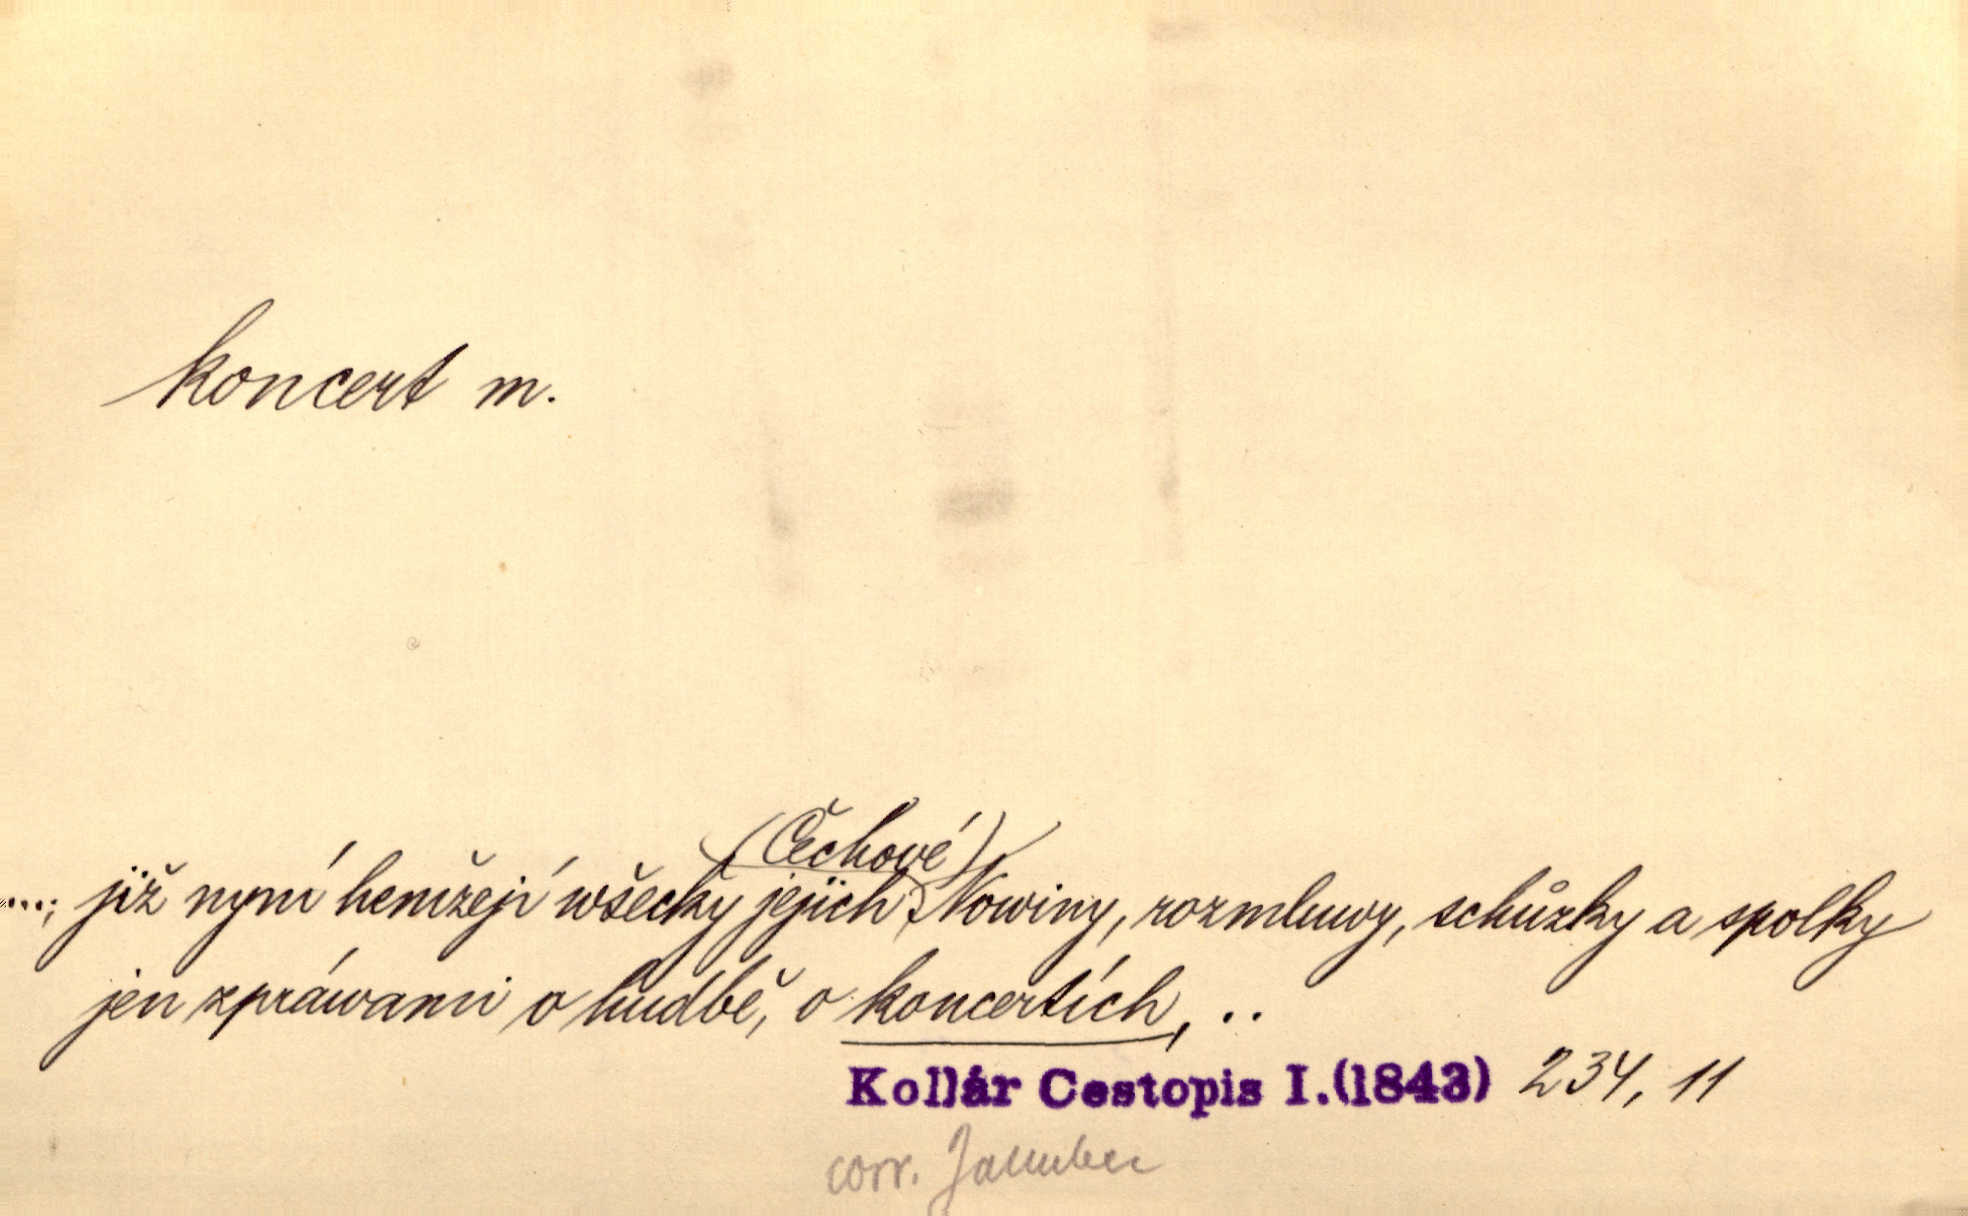 koncert m.
(Čechové)
...; již nyní hemžejí wšecky jejich Nowiny, rozmluwy, schůzky a spolky
jen zpráwami o hudbě, o koncertích, ..
Kollár Cestopis I.(1843) 234, 11
corr. Jakubec